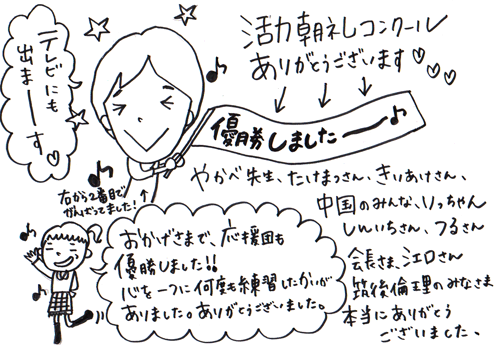 活力朝礼コンクール
ありがとうございます♡♡♡
テレビにも
出まーーす♡
優勝しましたーー♪
右から2番目で
がんばってました!
やかべ先生、たけまつさん、きりあけさん、
中国のみんな、りっちゃん
しんいちさん、つるさん
会長さま、江口さん
筑後倫理のみなさま
本当にありがとう
ございました、
おかげさまで、応援団も
優勝しました!!
心を一つに何度も練習したかいが
ありました。ありがとうございました。